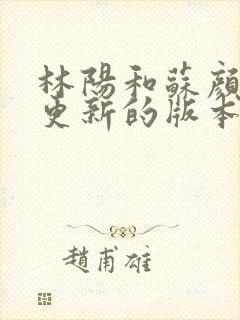 林陽和蘇顏
更新的版本
趙甫雄